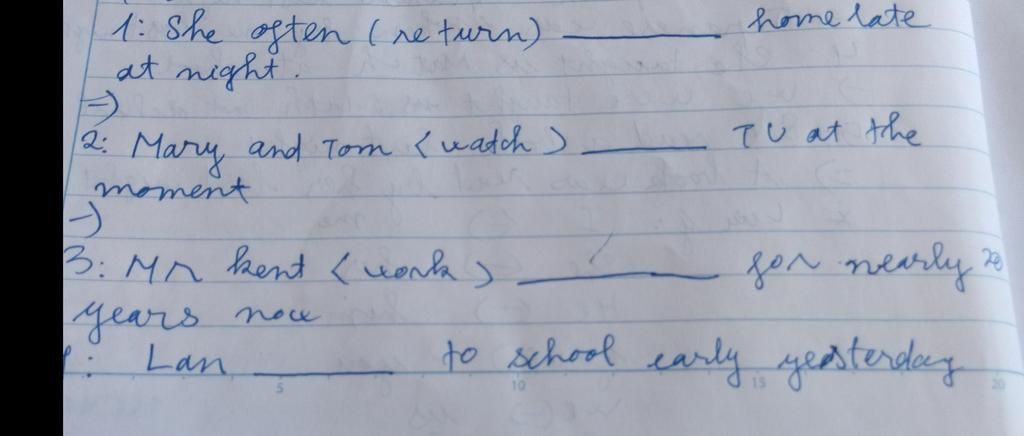 1: She often (return) ________ home late
at night.
=)
2: Mary and Tom (watch) ________ TV at the
moment
-)
3: Mr kent (work) ________ for nearly 20
years now
: Lan ________ to school early yesterday
5 10 15 20